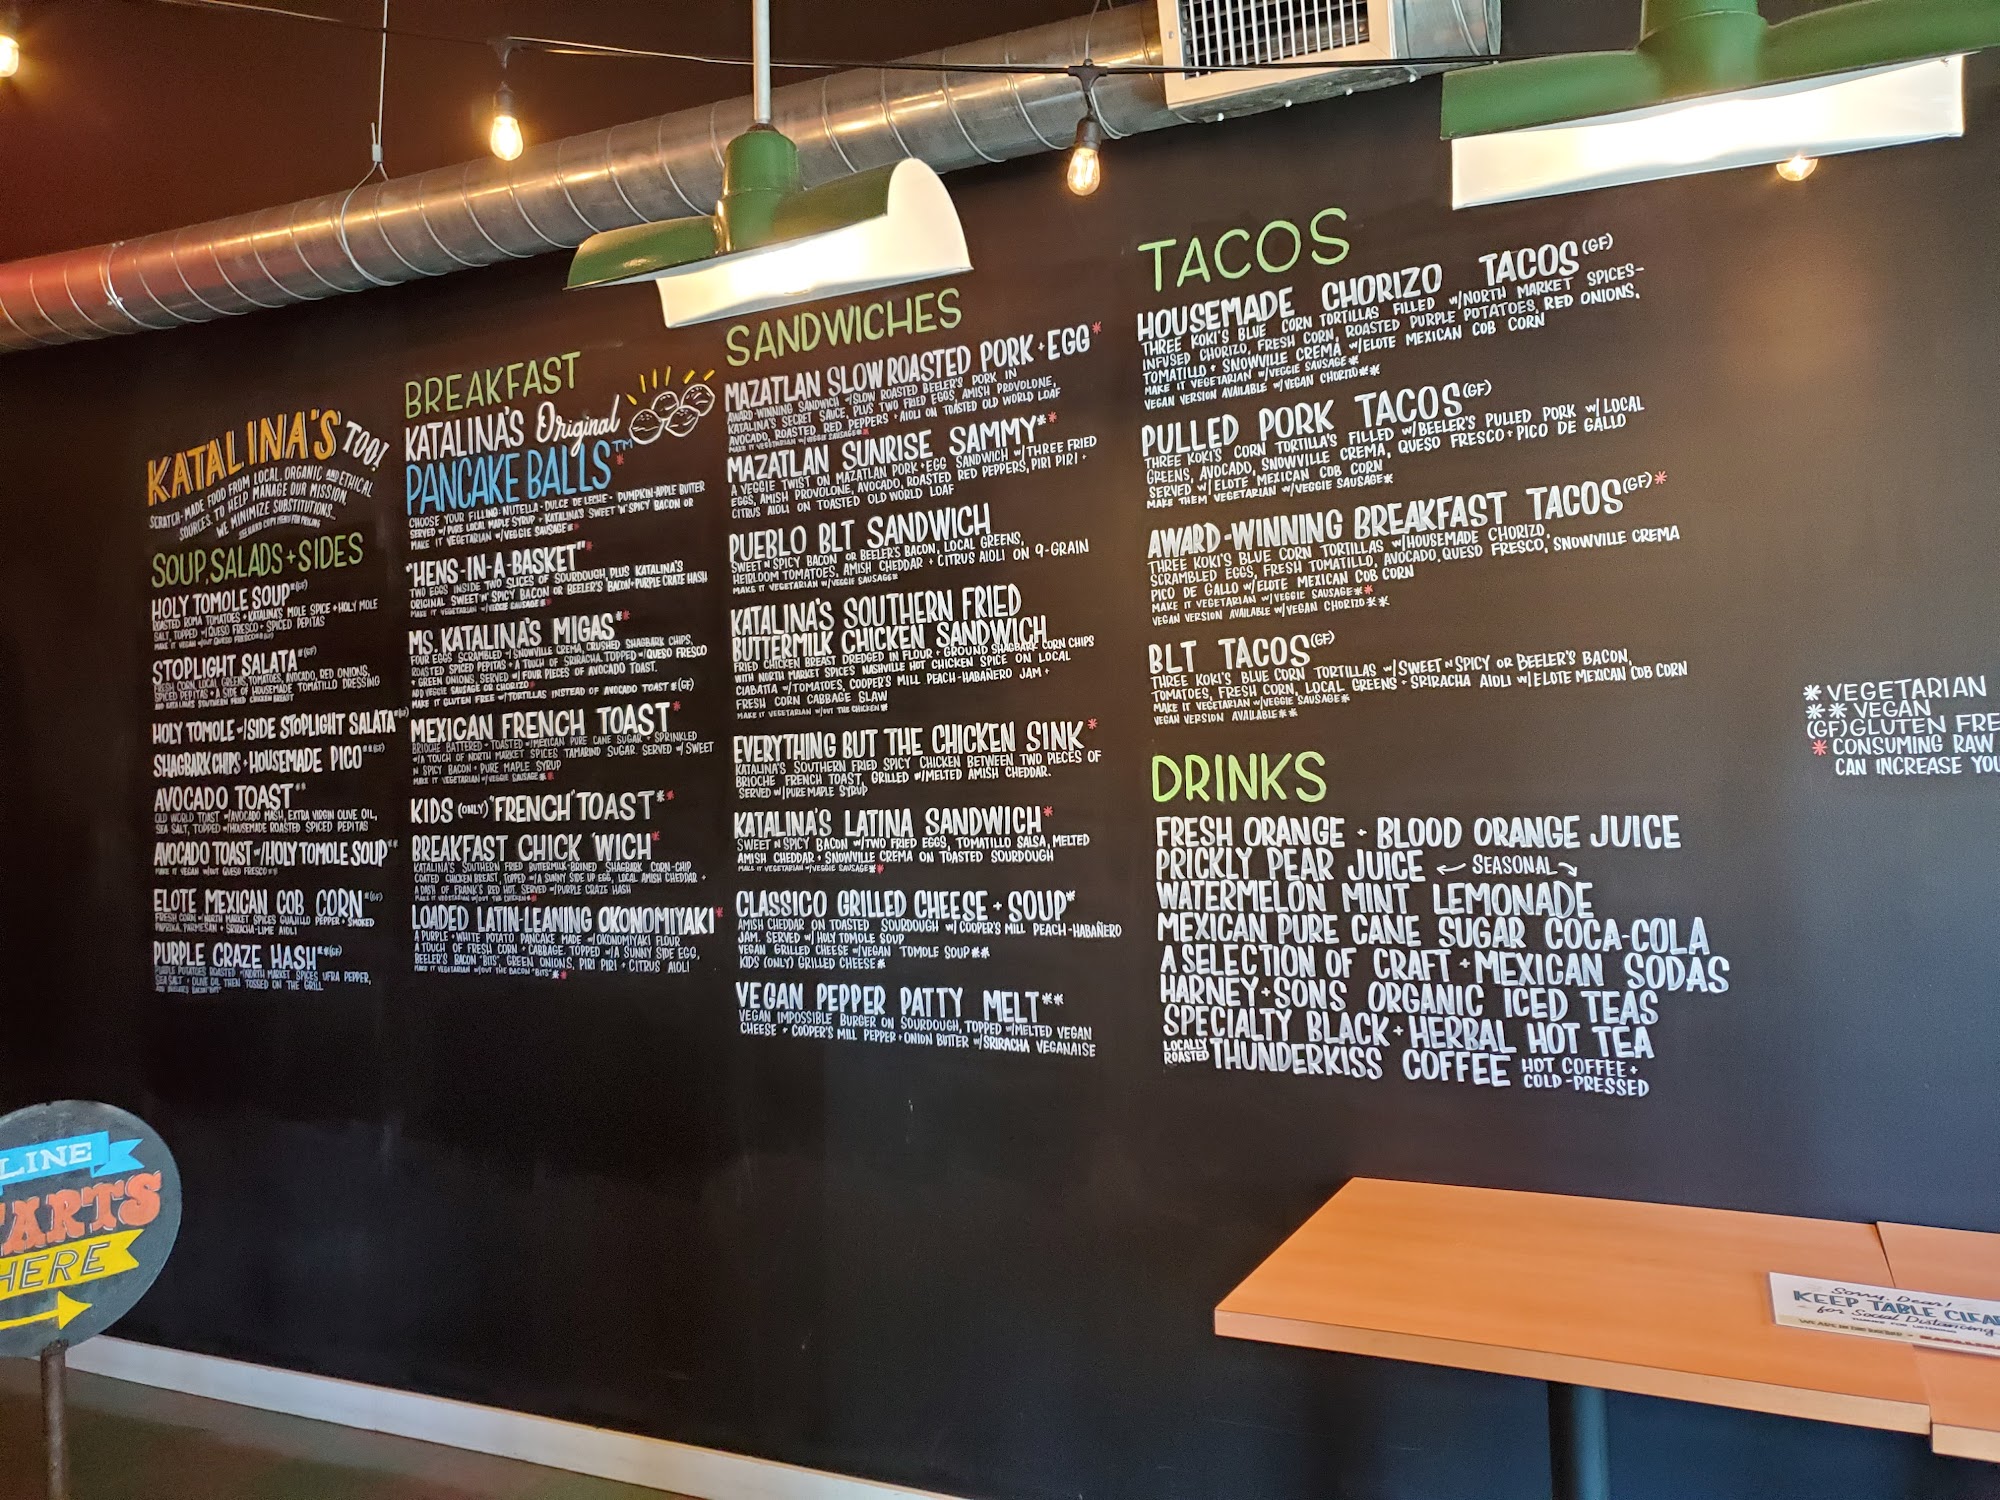 KATALINA'S TOO!
SCRATCH-MADE FOOD FROM LOCAL, ORGANIC AND ETHICAL
SOURCES. TO HELP MANAGE OUR MISSION,
WE MINIMIZE SUBSTITUTIONS...
SOUP, SALADS + SIDES
HOLY TOMOLE SOUP*(GF)
ROASTED ROMA TOMATOES + KATALINA'S MOLE SPICE + HOLY MOLE
SALT, TOPPED w/QUESO FRESCO + SPICED PEPITAS
MAKE IT VEGAN w/OUT QUESO FRESCO**(GF)
STOPLIGHT SALATA*(GF)
FRESH CORN, LOCAL GREENS, TOMATOES, AVOCADO, RED ONIONS,
SPICED PEPITAS + A SIDE OF HOUSEMADE TOMATILLO DRESSING
ADD KATALINA'S SOUTHERN FRIED CHICKEN BREAST
HOLY TOMOLE w/SIDE STOPLIGHT SALATA*(GF)
SHAGBARK CHIPS + HOUSEMADE PICO**(GF)
AVOCADO TOAST**
OLD WORLD TOAST w/AVOCADO MASH, EXTRA VIRGIN OLIVE OIL,
SEA SALT, TOPPED w/HOUSEMADE ROASTED SPICED PEPITAS
AVOCADO TOAST w/HOLY TOMOLE SOUP**
MAKE IT VEGAN w/OUT QUESO FRESCO**
ELOTE MEXICAN COB CORN*(GF)
FRESH CORN w/NORTH MARKET SPICES GUAJILLO PEPPER + SMOKED
PAPRIKA, PARMESAN + SRIRACHA-LIME AIOLI
PURPLE CRAZE HASH**(GF)
PURPLE POTATOES ROASTED w/NORTH MARKET SPICES URFA PEPPER,
SEA SALT + OLIVE OIL THEN TOSSED ON THE GRILL
ADD BEELER'S BACON "BITS"
BREAKFAST
KATALINA'S Original
PANCAKE BALLS™*
CHOOSE YOUR FILLING: NUTELLA - DULCE DE LECHE - PUMPKIN-APPLE BUTTER
SERVED w/PURE LOCAL MAPLE SYRUP + KATALINA'S SWEET 'N' SPICY BACON OR
MAKE IT VEGETARIAN w/VEGGIE SAUSAGE**
"HENS-IN-A-BASKET"*
TWO EGGS INSIDE TWO SLICES OF SOURDOUGH, PLUS KATALINA'S
ORIGINAL SWEET 'N' SPICY BACON OR BEELER'S BACON + PURPLE CRAZE HASH
MAKE IT VEGETARIAN w/VEGGIE SAUSAGE**
MS. KATALINA'S MIGAS**
FOUR EGGS SCRAMBLED w/SNOWVILLE CREMA, CRUSHED SHAGBARK CHIPS,
ROASTED SPICED PEPITAS + A TOUCH OF SRIRACHA. TOPPED w/QUESO FRESCO
+ GREEN ONIONS, SERVED w/FOUR PIECES OF AVOCADO TOAST.
ADD VEGGIE SAUSAGE OR CHORIZO*
MAKE IT GLUTEN FREE w/TORTILLAS INSTEAD OF AVOCADO TOAST*(GF)
MEXICAN FRENCH TOAST*
BRIOCHE BATTERED + TOASTED w/MEXICAN PURE CANE SUGAR + SPRINKLED
w/A TOUCH OF NORTH MARKET SPICES TAMARIND SUGAR. SERVED w/SWEET
N SPICY BACON + PURE MAPLE SYRUP
MAKE IT VEGETARIAN w/VEGGIE SAUSAGE**
KIDS (ONLY) "FRENCH" TOAST**
BREAKFAST CHICK 'WICH*
KATALINA'S SOUTHERN FRIED BUTTERMILK-BRINED SHAGBARK CORN-CHIP
COATED CHICKEN BREAST, TOPPED w/A SUNNY SIDE UP EGG, LOCAL AMISH CHEDDAR +
A DASH OF FRANK'S RED HOT. SERVED w/PURPLE CRAZE HASH
MAKE IT VEGETARIAN w/OUT THE CHICKEN**
LOADED LATIN-LEANING OKONOMIYAKI*
A PURPLE + WHITE POTATO PANCAKE MADE w/OKONOMIYAKI FLOUR
A TOUCH OF FRESH CORN + CABBAGE. TOPPED w/A SUNNY SIDE EGG,
BEELER'S BACON "BITS", GREEN ONIONS, PIRI PIRI + CITRUS AIOLI
MAKE IT VEGETARIAN w/OUT THE BACON "BITS"**
SANDWICHES
MAZATLAN SLOW ROASTED PORK + EGG*
AWARD-WINNING SANDWICH w/SLOW ROASTED BEELER'S PORK IN
KATALINA'S SECRET SAUCE, PLUS TWO FRIED EGGS, AMISH PROVOLONE,
AVOCADO, ROASTED RED PEPPERS + AIOLI ON TOASTED OLD WORLD LOAF
MAKE IT VEGETARIAN w/VEGGIE SAUSAGE**
MAZATLAN SUNRISE SAMMY**
A VEGGIE TWIST ON MAZATLAN PORK + EGG SANDWICH w/THREE FRIED
EGGS, AMISH PROVOLONE, AVOCADO, ROASTED RED PEPPERS, PIRI PIRI +
CITRUS AIOLI ON TOASTED OLD WORLD LOAF
PUEBLO BLT SANDWICH
SWEET N SPICY BACON OR BEELER'S BACON, LOCAL GREENS,
HEIRLOOM TOMATOES, AMISH CHEDDAR + CITRUS AIOLI ON 9-GRAIN
MAKE IT VEGETARIAN w/VEGGIE SAUSAGE*
KATALINA'S SOUTHERN FRIED
BUTTERMILK CHICKEN SANDWICH
FRIED CHICKEN BREAST DREDGED IN FLOUR + GROUND SHAGBARK CORN CHIPS
WITH NORTH MARKET SPICES NASHVILLE HOT CHICKEN SPICE ON LOCAL
CIABATTA w/TOMATOES, COOPER'S MILL PEACH-HABAÑERO JAM +
FRESH CORN CABBAGE SLAW
MAKE IT VEGETARIAN w/OUT THE CHICKEN*
EVERYTHING BUT THE CHICKEN SINK*
KATALINA'S SOUTHERN FRIED SPICY CHICKEN BETWEEN TWO PIECES OF
BRIOCHE FRENCH TOAST, GRILLED w/MELTED AMISH CHEDDAR.
SERVED w/PURE MAPLE SYRUP
KATALINA'S LATINA SANDWICH*
SWEET N SPICY BACON w/TWO FRIED EGGS, TOMATILLO SALSA, MELTED
AMISH CHEDDAR + SNOWVILLE CREMA ON TOASTED SOURDOUGH
MAKE IT VEGETARIAN w/VEGGIE SAUSAGE**
CLASSICO GRILLED CHEESE + SOUP*
AMISH CHEDDAR ON TOASTED SOURDOUGH w/COOPER'S MILL PEACH-HABAÑERO
JAM. SERVED w/HOLY TOMOLE SOUP
VEGAN GRILLED CHEESE w/VEGAN TOMOLE SOUP**
KIDS (ONLY) GRILLED CHEESE*
VEGAN PEPPER PATTY MELT**
VEGAN IMPOSSIBLE BURGER ON SOURDOUGH, TOPPED w/MELTED VEGAN
CHEESE + COOPER'S MILL PEPPER + ONION BUTTER w/SRIRACHA VEGANAISE
TACOS
HOUSEMADE CHORIZO TACOS(GF)
THREE KOKI'S BLUE CORN TORTILLAS FILLED w/NORTH MARKET SPICES-
INFUSED CHORIZO, FRESH CORN, ROASTED PURPLE POTATOES, RED ONIONS,
TOMATILLO + SNOWVILLE CREMA w/ELOTE MEXICAN COB CORN
MAKE IT VEGETARIAN w/VEGGIE SAUSAGE*
VEGAN VERSION AVAILABLE w/VEGAN CHORIZO**
PULLED PORK TACOS(GF)
THREE KOKI'S CORN TORTILLA'S FILLED w/BEELER'S PULLED PORK w/LOCAL
GREENS, AVOCADO, SNOWVILLE CREMA, QUESO FRESCO + PICO DE GALLO
SERVED w/ELOTE MEXICAN COB CORN
MAKE THEM VEGETARIAN w/VEGGIE SAUSAGE*
AWARD-WINNING BREAKFAST TACOS(GF)*
THREE KOKI'S BLUE CORN TORTILLAS w/HOUSEMADE CHORIZO,
SCRAMBLED EGGS, FRESH TOMATILLO, AVOCADO, QUESO FRESCO, SNOWVILLE CREMA
PICO DE GALLO w/ELOTE MEXICAN COB CORN
MAKE IT VEGETARIAN w/VEGGIE SAUSAGE**
VEGAN VERSION AVAILABLE w/VEGAN CHORIZO**
BLT TACOS(GF)
THREE KOKI'S BLUE CORN TORTILLAS w/SWEET N SPICY OR BEELER'S BACON,
TOMATOES, FRESH CORN, LOCAL GREENS + SRIRACHA AIOLI w/ELOTE MEXICAN COB CORN
MAKE IT VEGETARIAN w/VEGGIE SAUSAGE*
VEGAN VERSION AVAILABLE**
DRINKS
FRESH ORANGE + BLOOD ORANGE JUICE
PRICKLY PEAR JUICE ← SEASONAL →
WATERMELON MINT LEMONADE
MEXICAN PURE CANE SUGAR COCA-COLA
A SELECTION OF CRAFT + MEXICAN SODAS
HARNEY + SONS ORGANIC ICED TEAS
SPECIALTY BLACK + HERBAL HOT TEA
LOCALLY ROASTED THUNDERKISS COFFEE HOT COFFEE + COLD-PRESSED
* VEGETARIAN
** VEGAN
(GF) GLUTEN FRE
* CONSUMING RAW
CAN INCREASE YOU
LINE
ARTS
HERE
Sorry, Dear!
KEEP TABLE CLEA
for Social Distancing